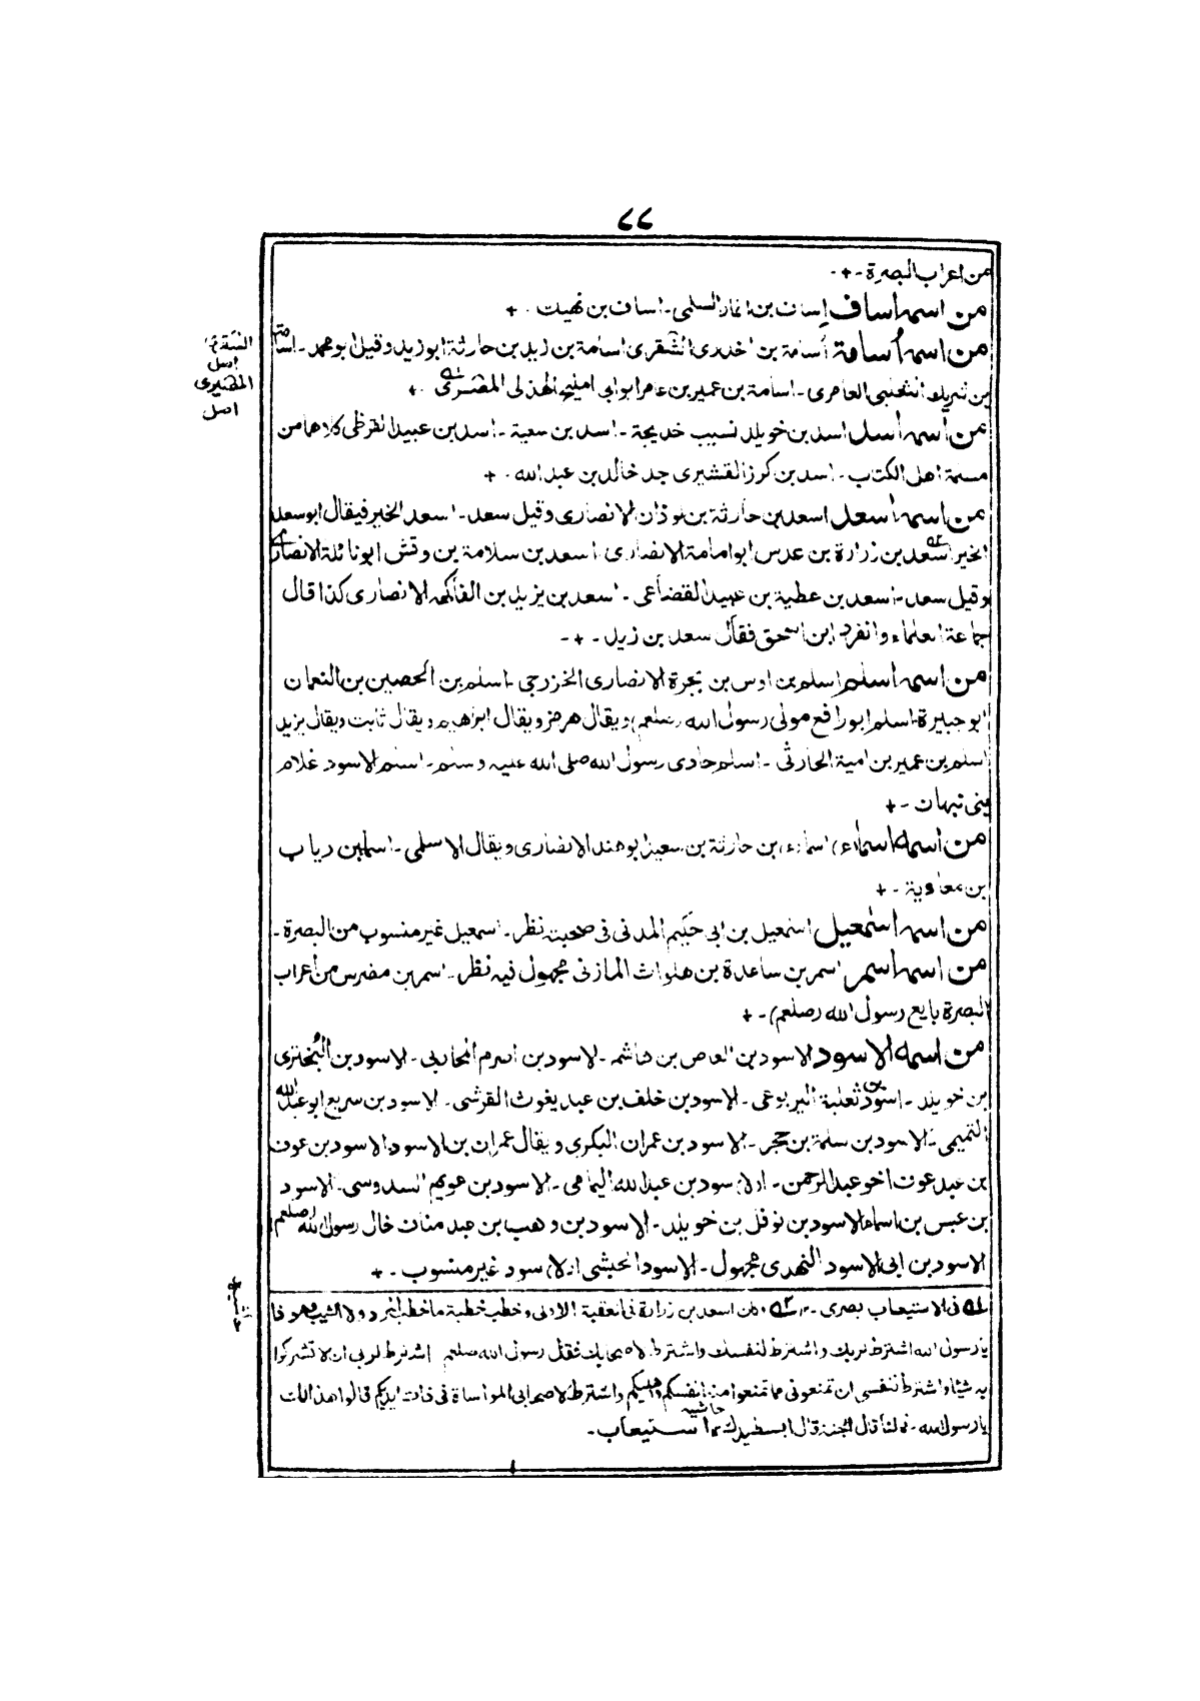 ٧٧
من اعراب البصرة -+-
من اسمه اساف إساف بن انمار السلمى - اساف بن نهيك - +
من اسمه أسامة أسامة بن اخدرى الشقرى اسامة بن زيد بن حارثة ابو زيد وقيل ابو محمد - اسامة
بن شريك الثعلبى العامرى - اسامة بن عمير بن عامر ابو ابى المليح الهذلى المضرى - +
من اسمه أسد اسد بن خويلد نسيب خديجة - اسد بن سعية - اسد بن عبيد القرظى كلاهما من
مسلمة اهل الكتاب - اسد بن كرز القشيرى جد خالد بن عبد الله - +
من اسمه أسعد اسعد بن حارثة بن لوذان الانصارى وقيل سعد - اسعد الخير فيقال ابو سعد
الخير اسعد بن زرارة بن عدس ابو امامة الانصارى اسعد بن سلامة بن وقش ابو نائلة الانصارى
وقيل سعد - اسعد بن عطية بن عبيد القضاعى - اسعد بن يزيد بن الفاكه الانصارى كذا قال
جماعة العلماء وانفرد ابن اسحق فقال سعد بن زيد - +-
من اسمه اسلم اسلم بن اوس بن بجرة الانصارى الخزرجى - اسلم بن الحصين بن النعمان
ابو جبيرة - اسلم ابو رافع مولى رسول الله (صلعم) ويقال هرمز ويقال ابراهيم ويقال ثابت ويقال يزيد
اسلم بن عمير بن امية الحارثى - اسلم حادى رسول الله صلى الله عليه وسلم - اسلم الاسود غلام
بنى نبهان - +
من اسمه اسماء (اسماء) بن حارثة بن سعيد ابو هند الانصارى ويقال الاسلمى - اسماء بن رياب
بن معاوية - +
من اسمه اسمعيل اسمعيل بن ابى حكيم المدنى فى صحبته نظر - اسمعيل غير منسوب من البصرة -
من اسمه اسمر اسمر بن ساعدة بن هلواث المازنى مجهول فيه نظر - اسمر بن مضرس من أعراب
البصرة بايع رسول الله (صلعم) - +
من اسمه الاسود الاسود بن العاص بن هاشم - الاسود بن اصرم المحاربى - الاسود بن البُختزى
بن خويلد - اسود بن ثعلبة اليربوعى - الاسود بن خلف بن عبد يغوث القرشى - الاسود بن سريع ابو عبد الله
التميمى - الاسود بن سلمة بن حجر - الاسود بن عمران البكرى ويقال عمران بن الاسود الاسود بن عوف
بن عبد عوف اخو عبد الرحمن - الاسود بن عبد الله اليمامى - الاسود بن عويم السدوسى - الاسود
بن عبس بن اسماء الاسود بن نوفل بن خويلد - الاسود بن وهب بن عبد مناف خال رسول الله (صلعم)
الاسود بن ابى الاسود النهدى مجهول - الاسود الحبشى الاسود غير منسوب - +
فى الاستيعاب بصرى - كان اسعد بن زرارة فى العقبة الاولى وخطب خطبة ما خطب المرد ولا الشيب
يا رسول الله اشترط لربك واشترط لنفسك واشترط لاصحابك فقال رسول الله صلعم اشترط لربى ان لا تشركوا
به شيئا واشترط لنفسى ان تمنعونى مما تمنعوا منه انفسكم واهليكم واشترط لاصحابى المواساة فى ذات ايديكم قالوا هذا لك
يا رسول الله - فما لنا قال الجنة قال ابسط يدك حاشيه استيعاب -
اصل
المضيرى
اصل
حاشيه